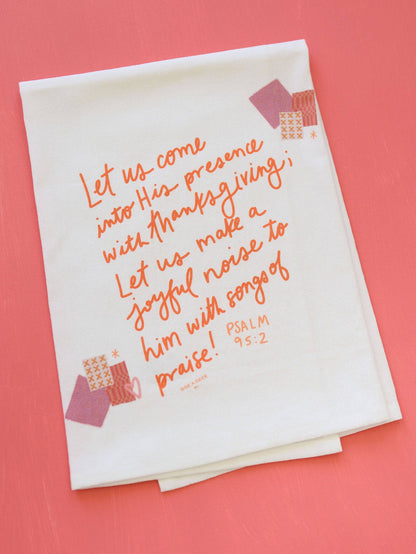 Let us come
into His presence
with thanksgiving;
Let us make a
joyful noise to
him with songs of
praise!
PSALM
95:2